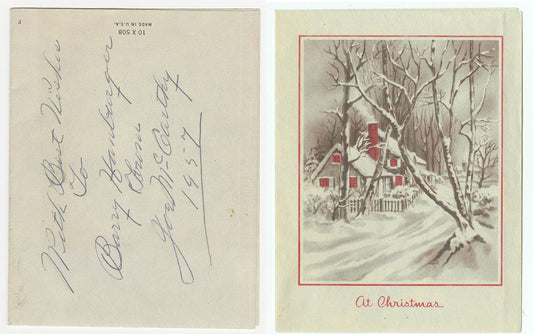 10 X 508
MADE IN U.S.A.
With Best Wishes
To
Barry Hamburger
From
Joe McCarthy
1957
At Christmas